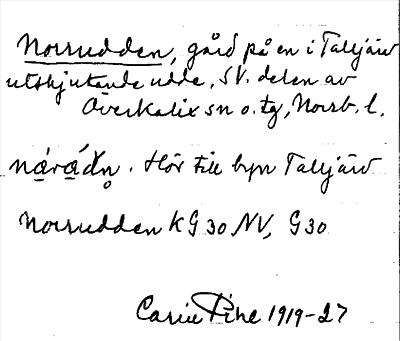 Norrudden, gård på en i Talljärv
utskjutande udde, SV. delen av
Överkalix sn o. tg, Norrb. l.
nàrádn̥. Hör till byn Talljärv
Norrudden KG 30 NV, G 30
Carin Pihl 1919-27